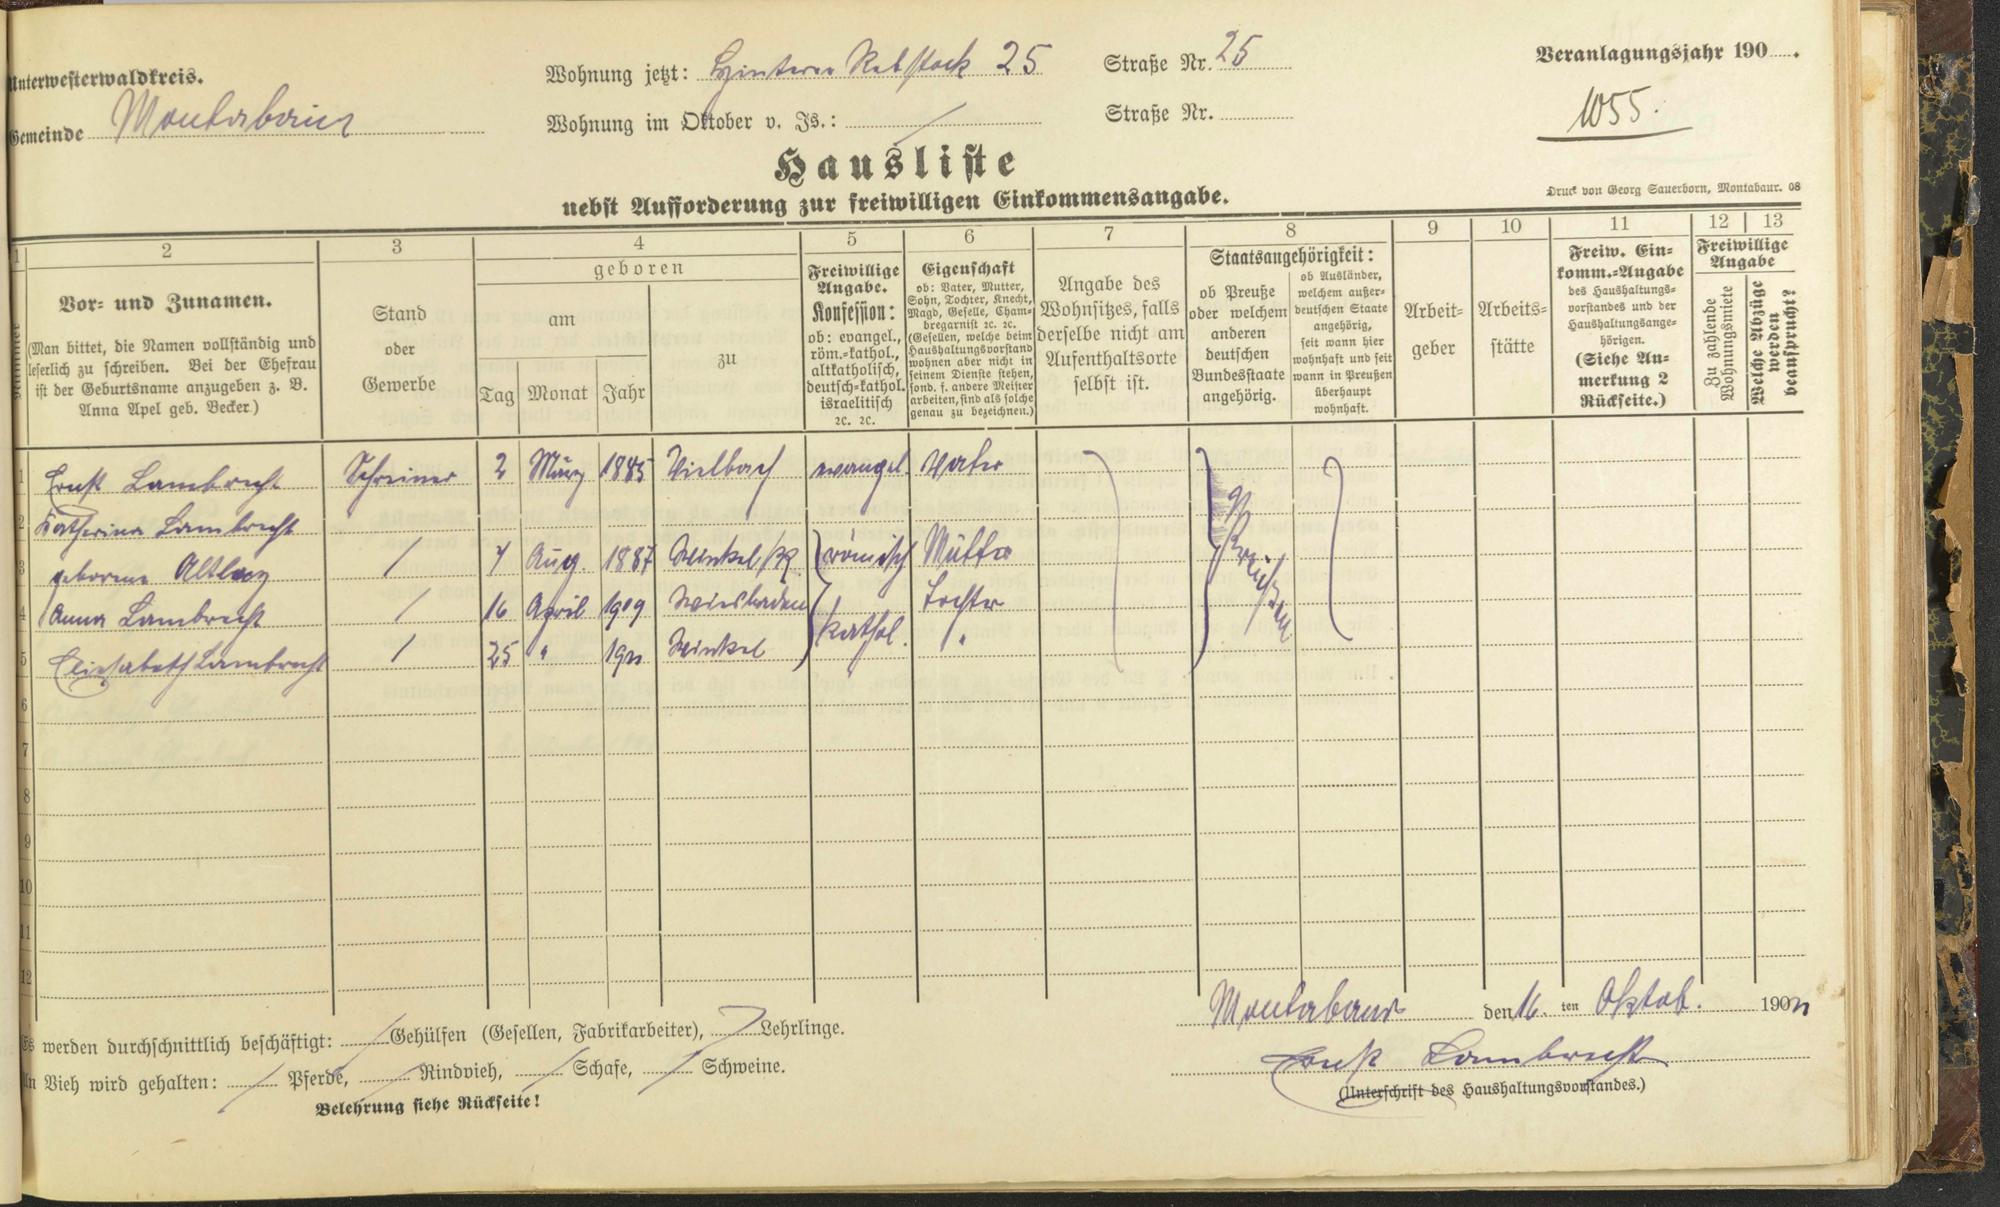 Unterwesterwaldkreis.
Gemeinde Montabaur
Wohnung jetzt: Hinterer Rebstock 25 Straße Nr. 25
Wohnung im Oktober v. Js.: / Straße Nr.
Veranlagungsjahr 190 .
1055.
Hausliste
nebst Aufforderung zur freiwilligen Einkommensangabe.
Druck von Georg Sauerborn, Montabaur. 08
1 2 3 4 5 6 7 8 9 10 11 12 13
Nummer
Vor- und Zunamen.
(Man bittet, die Namen vollständig und
leserlich zu schreiben. Bei der Ehefrau
ist der Geburtsname anzugeben z. B.
Anna Apel geb. Becker.)
Stand
oder
Gewerbe
geboren
am
Tag Monat Jahr
zu
Freiwillige
Angabe.
Konfession:
ob: evangel.,
röm.-kathol.,
altkatholisch,
deutsch-kathol.
israelitisch
ꝛc. ꝛc.
Eigenschaft
ob: Vater, Mutter,
Sohn, Tochter, Knecht,
Magd, Geselle, Cham-
bregarnist ꝛc. ꝛc.
(Gesellen, welche beim
Haushaltungsvorstand
wohnen aber nicht in
seinem Dienste stehen,
sond. f. andere Meister
arbeiten, sind als solche
genau zu bezeichnen.)
Angabe des
Wohnsitzes, falls
derselbe nicht am
Aufenthaltsorte
selbst ist.
Staatsangehörigkeit:
ob Preuße
oder welchem
anderen
deutschen
Bundesstaate
angehörig.
ob Ausländer,
welchem außer-
deutschen Staate
angehörig,
seit wann hier
wohnhaft und seit
wann in Preußen
überhaupt
wohnhaft.
Arbeit-
geber
Arbeits-
stätte
Freiw. Ein-
komm.-Angabe
des Haushaltungs-
vorstandes und der
Haushaltungsange-
hörigen.
(Siehe An-
merkung 2
Rückseite.)
Freiwillige
Angabe
Zu zahlende
Wohnungsmiete
Welche Abzüge
werden
beansprucht?
1 Ernst Lambrecht Schreiner 2 März 1885 Vielbach evangel. Vater
2 Katherina Lambrecht
3 geborene / 7 Aug. 1887 Winkel römisch Mutter
4 Anna Lambrecht / 16 April 1909 Wiesbaden kathol. Tochter
5 Elisabeth Lambrecht / 25 " Winkel "
Preußen
6
7
8
9
10
11
12
Es werden durchschnittlich beschäftigt: / Gehülfen (Gesellen, Fabrikarbeiter), / Lehrlinge.
An Vieh wird gehalten: / Pferde, / Rindvieh, / Schafe, / Schweine.
Belehrung siehe Rückseite!
Montabaur den 16. ten Oktob.
Ernst Lambrecht
(Unterschrift des Haushaltungsvorstandes.)